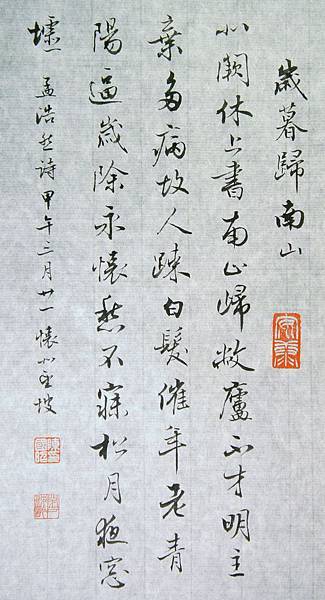 歲暮歸南山
北闕休上書南山歸敝廬不才明主
棄多病故人疎白髮催年老青
陽逼歲除永懷愁不寐松月夜窓
墟 孟浩然詩甲午三月廿一懷